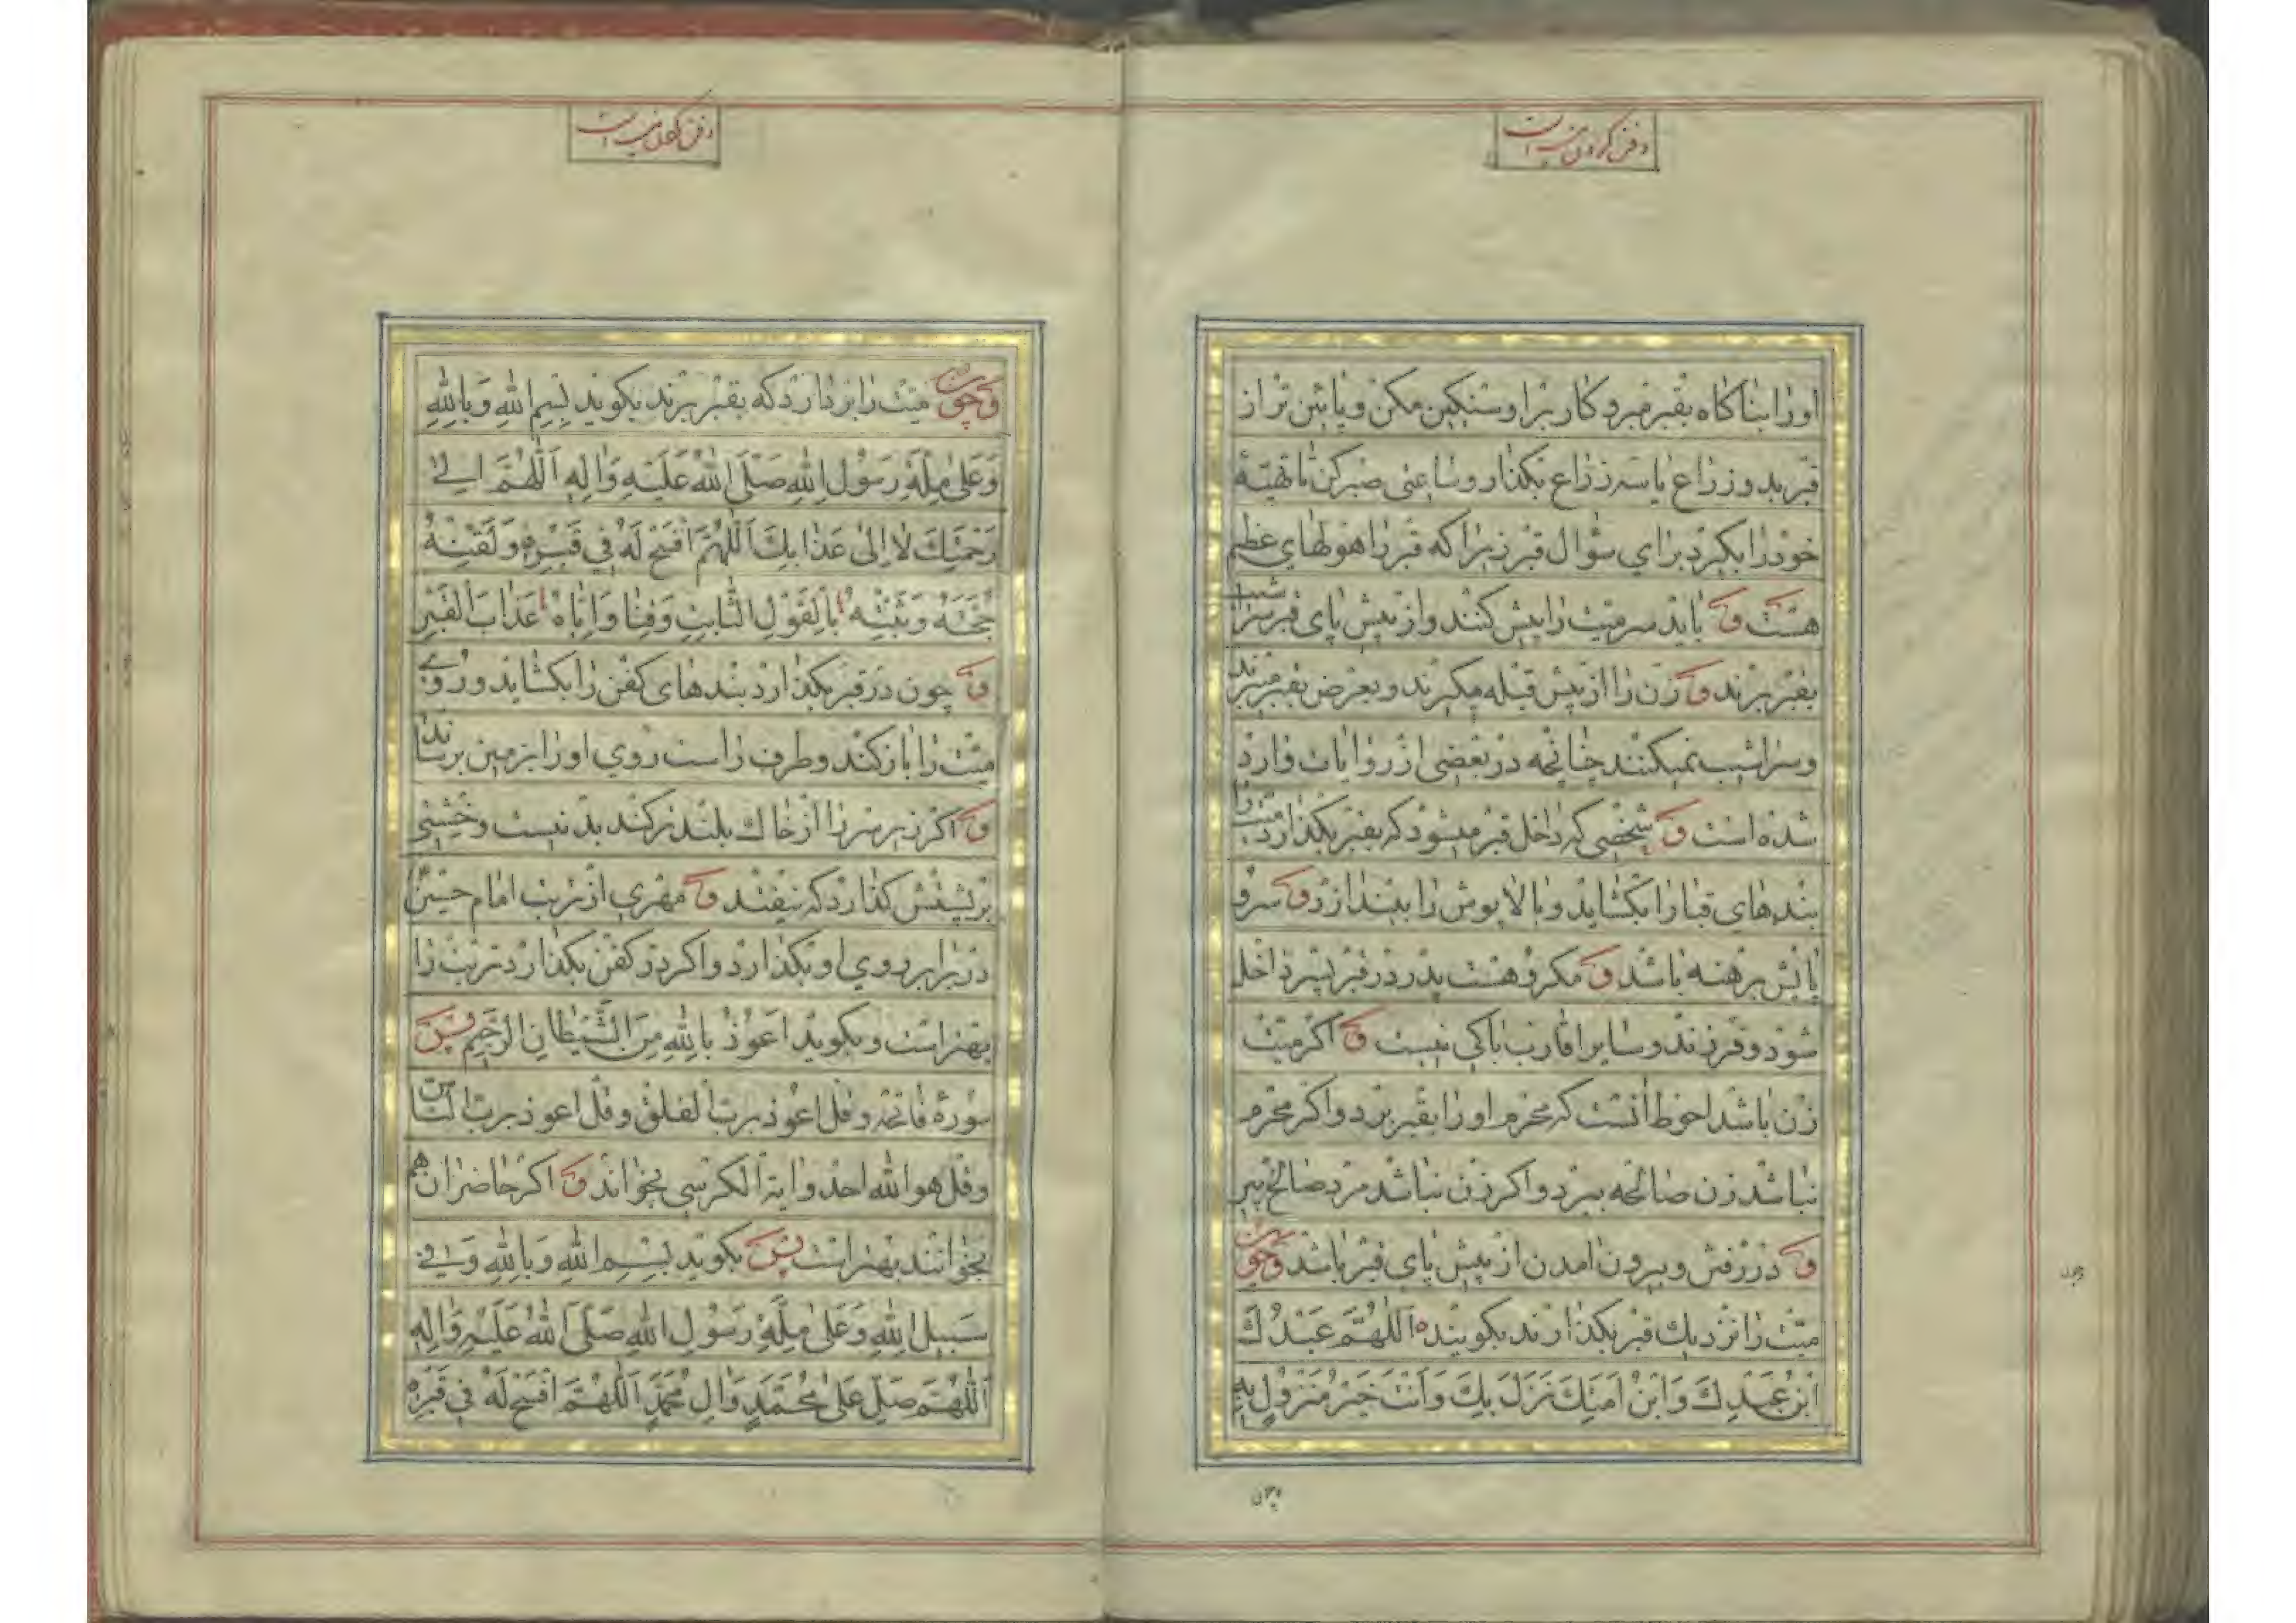 دفن کردن میت است
او را بناکاه بقبر مبر و کار بر او سنکین مکن و پائین تر از
قبر بدو زراع یا سه زراع بکذار و ساعتی صبر کن تا تهیّه
خود را بکیرد برای سؤال قبر زیرا که قبر را هولهای عظیم
هست و باید سر میت را پیش کنند و از پیش پای قبر سراشیب
بقبر برند و زن را از پیش قبله میکیرند و بعرض بقبر میبرند
و سراشیب نمیکنند چنانچه در بعضی از روایات وارد
شده است و شخصی که داخل قبر میشود که بقبر بکذارد میت را
بندهای قبا را بکشاید و بالاپوش را بیندازد و سر و
پایش برهنه باشد و مکروهست پدر در قبر پسر داخل
شود و فرزند و سایر اقارب باکی نیست و اکر میّت
زن باشد احوط آنست که محرم او را بقبر برد و اکر محرم
نباشد زن صالحه ببرد و اکر زن نباشد مرد صالح پیر
و در رفتن و بیرون امدن از پیش پای قبر باشد و چون
میّت را نزدیك قبر بکذارند بکویند اَللّٰهُمَّ عَبْدُكَ
اِبْنُ عَبْدِكَ وَابْنُ اَمَتِكَ نَزَلَ بِكَ وَاَنْتَ خَيْرُ مَنْزُولٍ بِهِ
و چون
دفن کردن میت است
و چون میّت را بردارد که بقبر برند بکوید بِسْمِ اللهِ وَبِاللهِ
وَعَلىٰ مِلَّةِ رَسُولِ اللهِ صَلَّى اللهُ عَلَيْهِ وَاٰلِهِ اَللّٰهُمَّ اِلىٰ
رَحْمَتِكَ لَا اِلىٰ عَذَابِكَ اَللّٰهُمَّ افْسَحْ لَهُ فِي قَبْرِهِ وَلَقِّنْهُ
حُجَّتَهُ وَثَبِّتْهُ بِالْقَوْلِ الثَّابِتِ وَقِنَا وَاِيَّاهُ عَذَابَ الْقَبْرِ
و چون در قبر بکذارد بندهای کفن را بکشاید و روی
میّت را باز کند و طرف راست روی او را بزمین برساند
و اکر زیر سر را از خاك بلندتر کند بد نیست و خشتی
بر پشتش کذارد که نیفتد و مهری از تربت امام حسین
در برابر روی او بکذارد و اکر در کفن بکذارد تربت را
بهتر است و بکوید اعوذ بِاللهِ مِنَ الشَّيْطَانِ الرَّجِيمِ پس
سورهٔ فاتحه و قل اعوذ برب الفلق و قل اعوذ برب الناس
و قل هو الله احد و ایة الکرسی بخواند و اکر حاضران هم
بخوانند بهتر است پس بکوید بِسْمِ اللهِ وَبِاللهِ وَفي
سَبِيلِ اللهِ وَعَلىٰ مِلَّةِ رَسُولِ اللهِ صَلَّى اللهُ عَلَيْهِ وَاٰلِهِ
اَللّٰهُمَّ صَلِّ عَلىٰ مُحَمَّدٍ وَاٰلِ مُحَمَّدٍ اَللّٰهُمَّ افْسَحْ لَهُ فِي قَبْرِهِ